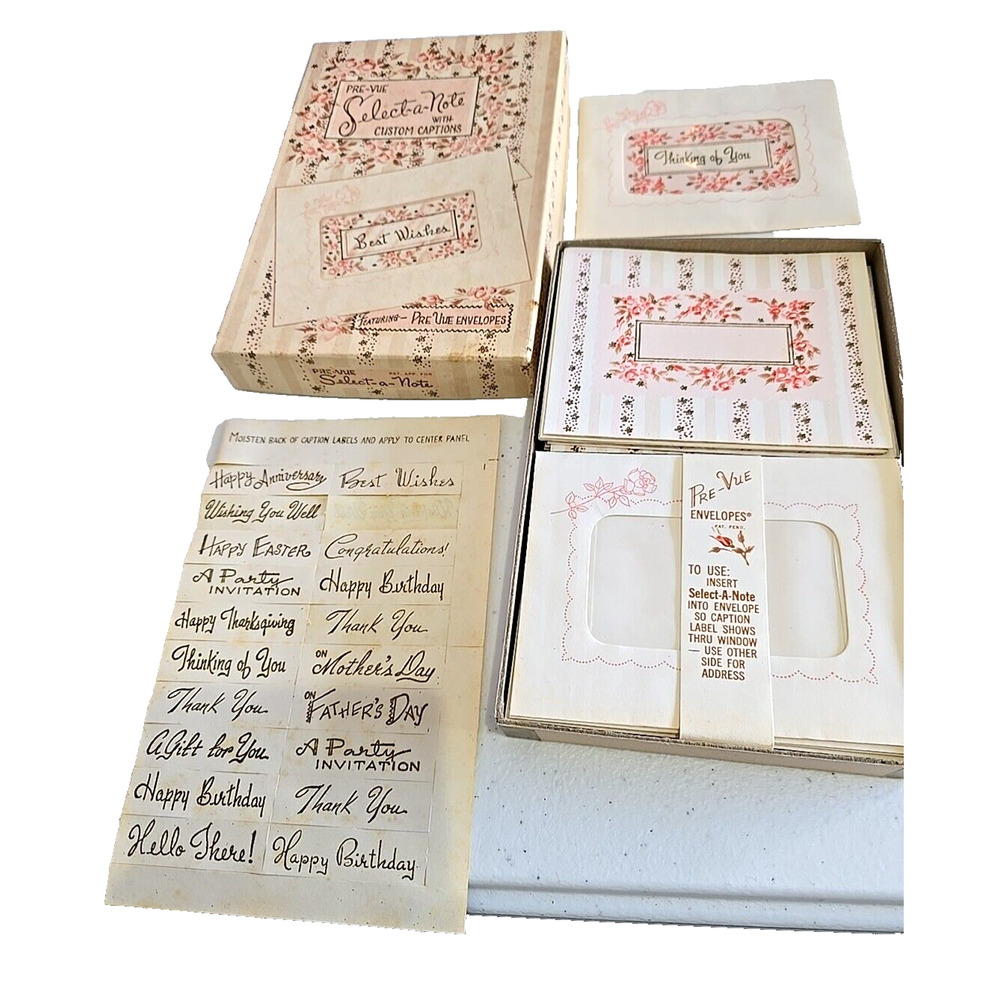 PRE-VUE
Select-a-Note
WITH
CUSTOM CAPTIONS
Best Wishes
FEATURING— PRE VUE ENVELOPES
PRE-VUE
Select-a-Note
Thinking of You
MOISTEN BACK OF CAPTION LABELS AND APPLY TO CENTER PANEL
Happy Anniversary
Best Wishes
Wishing You Well
HAPPY EASTER
Congratulations!
A Party
INVITATION
Happy Birthday
Happy Thanksgiving
Thank You
Thinking of You
ON
Mother's Day
Thank You
ON
FATHER'S DAY
A Gift for You
A Party
INVITATION
Happy Birthday
Thank You
Hello There!
Happy Birthday
PRE-VUE
ENVELOPES®
PAT. PEND.
TO USE:
INSERT
Select-A-Note
INTO ENVELOPE
SO CAPTION
LABEL SHOWS
THRU WINDOW
— USE OTHER
SIDE FOR
ADDRESS